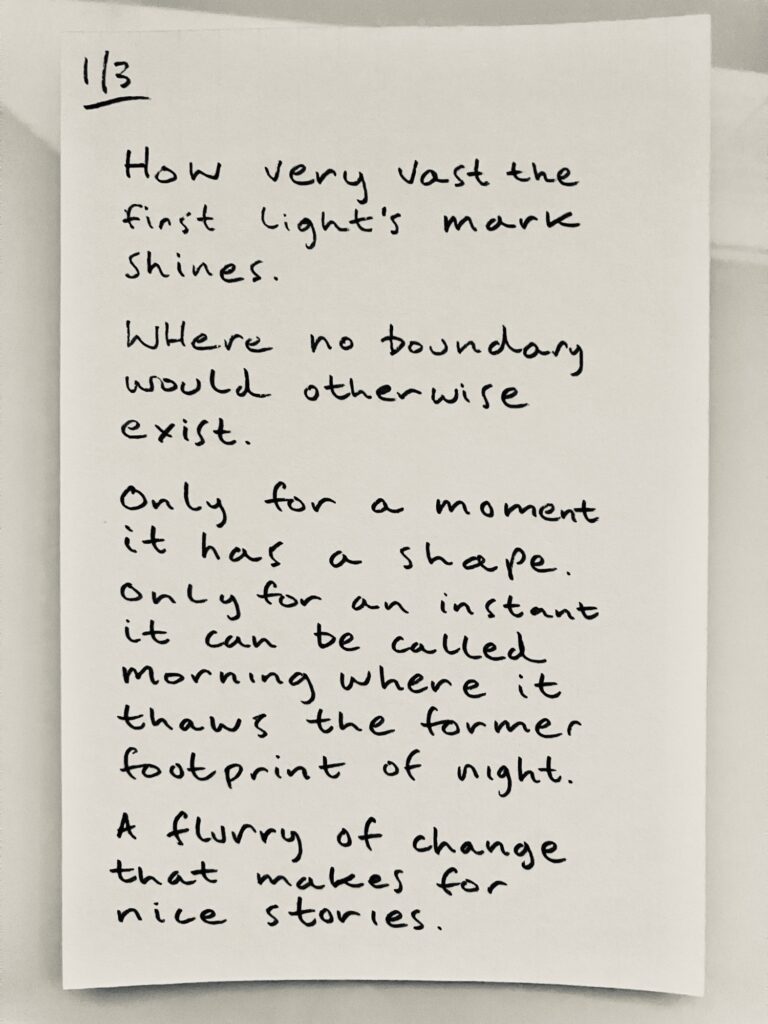 1/3
How very vast the
first light's mark
shines.
Where no boundary
would otherwise
exist.
Only for a moment
it has a shape.
Only for an instant
it can be called
morning where it
thaws the former
footprint of night.
A flurry of change
that makes for
nice stories.